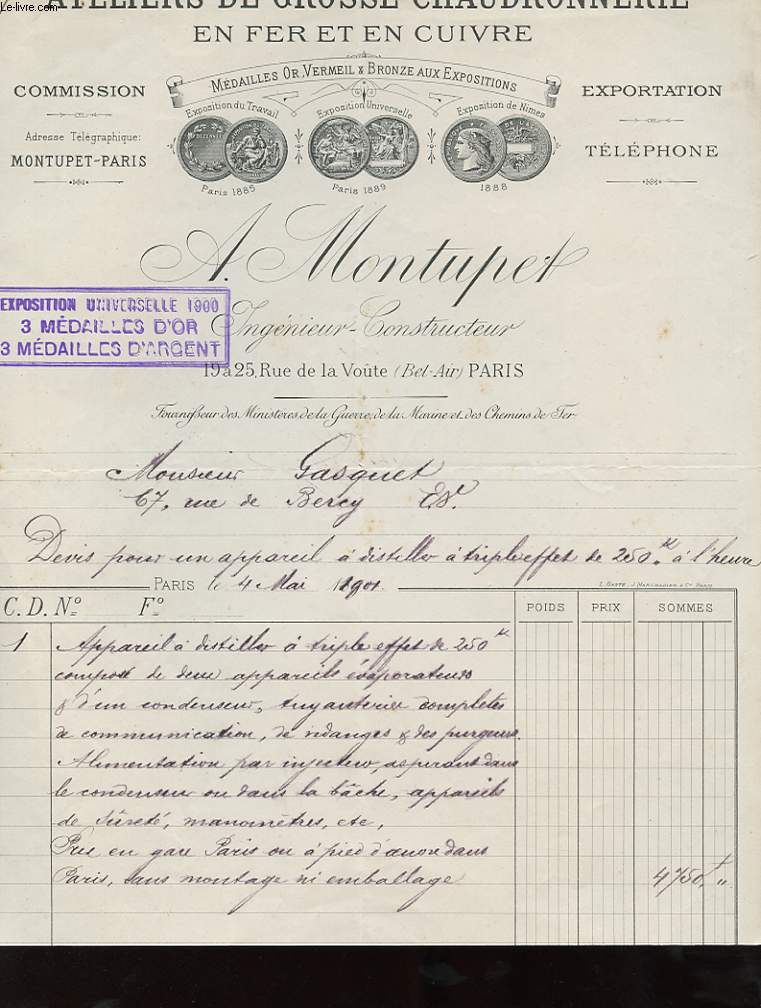 Le-livre.com
ATELIERS DE GROSSE CHAUDRONNERIE
EN FER ET EN CUIVRE
MÉDAILLES OR, VERMEIL & BRONZE AUX EXPOSITIONS
COMMISSION
EXPORTATION
Exposition du Travail
Exposition Universelle
Exposition de Nimes
Adresse Télégraphique:
MONTUPET-PARIS
TÉLÉPHONE
Paris 1885
Paris 1889
1888
A. Montupet
EXPOSITION UNIVERSELLE 1900
3 MÉDAILLES D'OR
3 MÉDAILLES D'ARGENT
Ingénieur-Constructeur
19 à 25, Rue de la Voûte (Bel-Air) PARIS
Fournisseur des Ministères de la Guerre, de la Marine et des Chemins de Fer
Monsieur Gasquet
67, rue de Bercy
Devis pour un appareil à distiller à triple effet de 250 à l'heure
PARIS le 4 Mai 1901
C.D. Nº Fº
POIDS PRIX SOMMES
1 Appareil à distiller à triple effet de 250
composé de deux appareils évaporateurs
& d'un condenseur, tuyauteries complètes
de communication, de vidanges & des purgeurs.
Alimentation par injecteur, aspirant dans
le condenseur ou dans la bâche, appareils
de sûreté, manomètres, etc,
Pris en gare Paris ou à pied d'œuvre dans
Paris, sans montage ni emballage 4750,f "